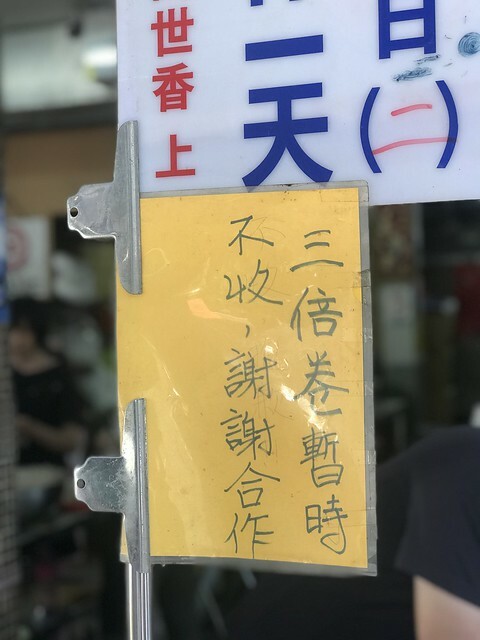 日(二)
一天
世香 上
三倍卷暫時
不收，謝謝合作